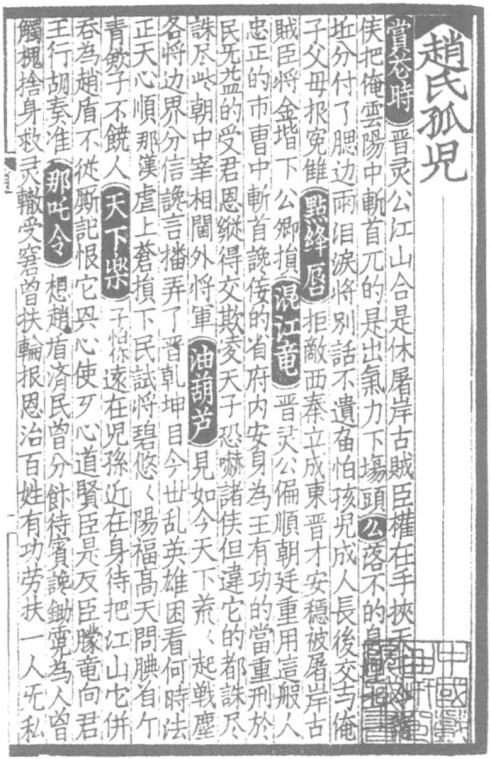 趙氏孤児
賞花時 晋灵公江山合是休屠岸古賊臣權在手挾天子令諸
侯把俺雲陽中斬首兀的是出氣力下塲頭 公 落不的身
坵分付了腮边兩泪淚將別話不遺留怕孩児成人長後交与俺
子父母报寃雠 點絳唇 拒敵西秦立成東晋才安穩被屠岸古
賊臣將金堦下公卿損 混江竜 晋灵公偏順朝廷重用這般人
忠正的市曹中斬首讒佞的省府内安身為王有功的當重刑於
民无益的受君恩縱得交欺凌天子恐嚇諸侯但違它的都誅尽
誅尽些朝中宰相閫外将軍 油葫芦 見如今天下荒〻起戦塵
各将边界分信讒言播弄了晋乾坤目今世乱英雄困看何時法
正天心順那漢虐上蒼損下民試将碧悠〻陽福髙天問腆着个
青鋮子不饒人 天下樂 子怕你遠在児孫近在身待把江山它併
吞為趙盾不從厮記恨它心使歹心道賢臣是反臣朦竜向君
王行胡奏准 那吒令 想趙盾済民曾分飰待賓讒鋤霓為人曾
觸槐捨身救灵輙受窘曾扶輪报恩治百姓有功劳扶一人无私